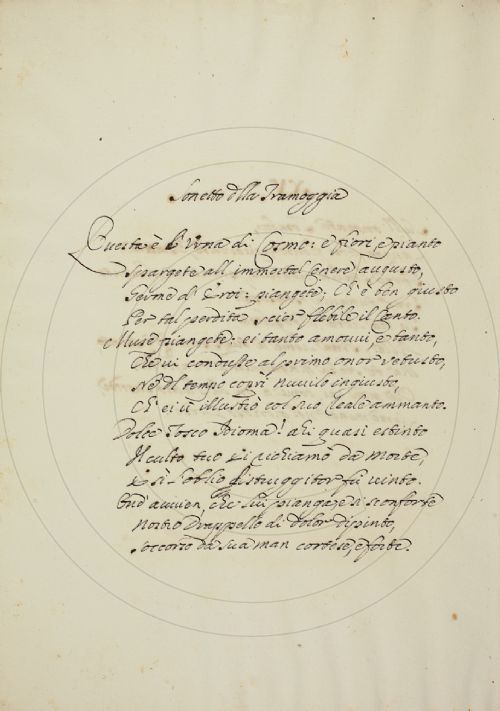 Sonetto della Tramoggia
Questa è l'Urna di Cosmo: e fiori, e pianto
Spargete all' immortal Cenere augusto,
Germe d' Eroi: piangete; Ch' è ben giusto
Per tal perdita scior flebile il Canto.
Muse piangete: ei tanto amovvi, e tanto,
Che vi condusse al primo onor vetusto,
Nè 'l tempo coprì nuvilo ingiusto,
Ch' ei vi illustrò col suo Reale ammanto.
Dolce Tosco Idioma! ahi quasi estinto
Il culto tuo Ei richiamò da Morte,
E sì l'oblio distruggitor fù vinto.
Ond' avvien, che sui pianga, e si sconforte
Nostro Drappello di dolor dipinto,
Soccorso da sua man cortese, e forte.